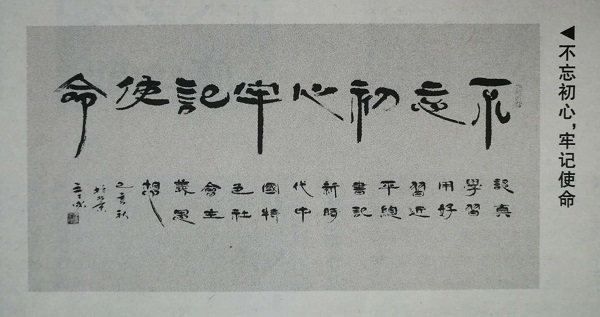 不忘初心牢記使命
認真
學習
用好
習近
平總
書記
新時
代中
國特
色社
會主
義思
想
己亥秋
於北京
◀不忘初心,牢记使命